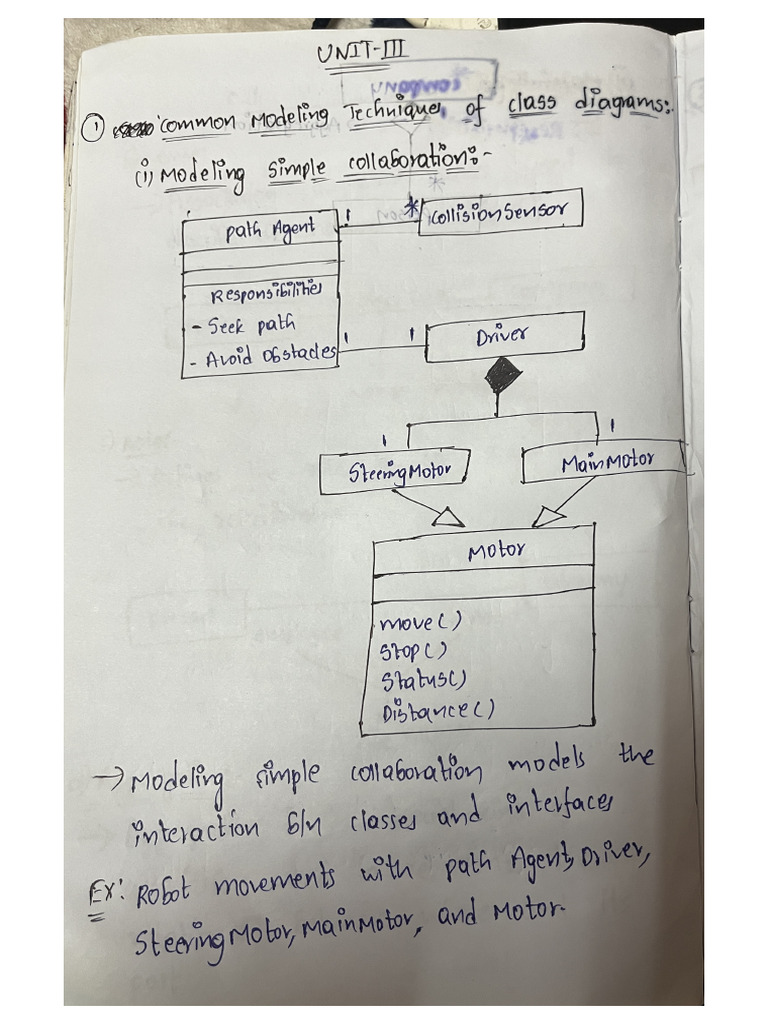 UNIT-III
① Common Modeling Techniques of class diagams:
(i) Modeling Simple collaboration:-
Path Agent
1
*
CollisionSensor
Responsibilities
- Seek path
- Avoid Obstacles
1
1
Driver
1
1
SteeringMotor
MainMotor
Motor
move()
Stop()
Status()
Distance()
→ Modeling simple collaboration models the
interaction b/n classes and interfaces
Ex: Robot movements with path Agent, Driver,
SteeringMotor, MainMotor, and Motor.